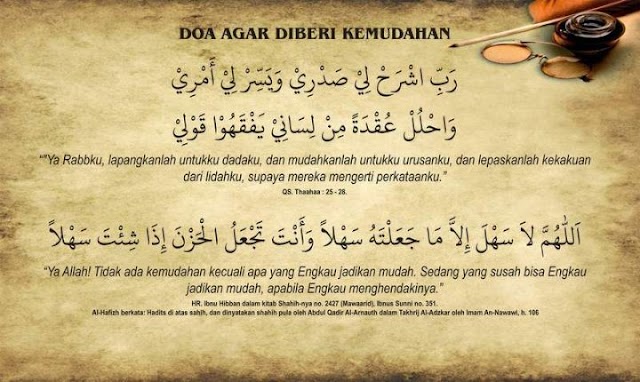 DOA AGAR DIBERI KEMUDAHAN
رَبِّ اشْرَحْ لِيْ صَدْرِيْ وَيَسِّرْ لِيْ أَمْرِيْ
وَاحْلُلْ عُقْدَةً مِنْ لِسَانِيْ يَفْقَهُوْا قَوْلِيْ
“"Ya Rabbku, lapangkanlah untukku dadaku, dan mudahkanlah untukku urusanku, dan lepaskanlah kekakuan
dari lidahku, supaya mereka mengerti perkataanku.”
QS. Thaahaa : 25 - 28.
اَللّٰهُمَّ لاَ سَهْلَ إِلاَّ مَا جَعَلْتَهُ سَهْلاً وَأَنْتَ تَجْعَلُ الْحَزْنَ إِذَا شِئْتَ سَهْلاً
“Ya Allah! Tidak ada kemudahan kecuali apa yang Engkau jadikan mudah. Sedang yang susah bisa Engkau
jadikan mudah, apabila Engkau menghendakinya.”
HR. Ibnu Hibban dalam kitab Shahih-nya no. 2427 (Mawaarid), Ibnus Sunni no. 351.
Al-Hafizh berkata: Hadits di atas sahih, dan dinyatakan shahih pula oleh Abdul Qadir Al-Arnauth dalam Takhrij Al-Adzkar oleh Imam An-Nawawi, h. 106